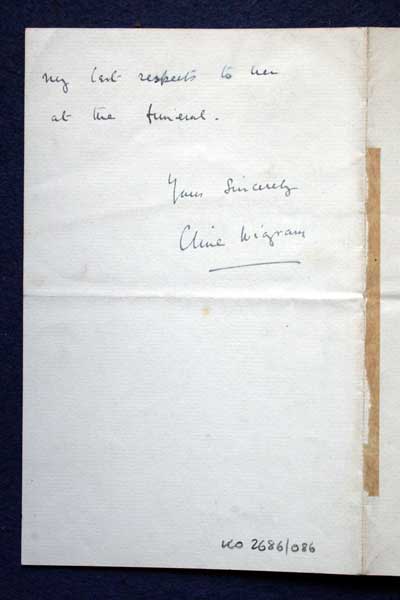 my last respects to her
at the funeral.
Yours Sincerely
Clive Wigram
KO 2686/086